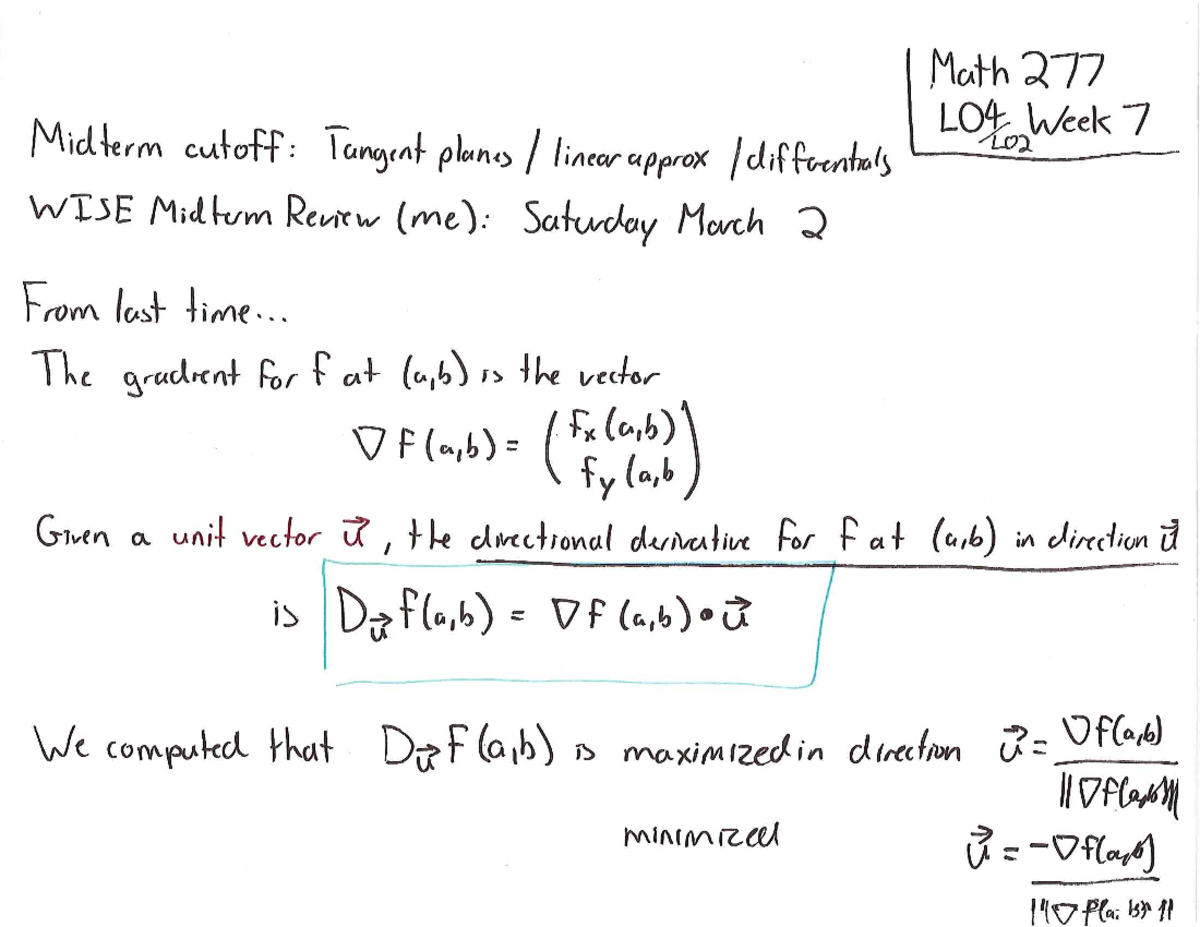 Math 277
L04, L02 Week 7
Midterm cutoff: Tangent planes / linear approx / differentials
WISE Midterm Review (me): Saturday March 2
From last time...
The gradient for f at (a,b) is the vector
∇f(a,b) = ( fx(a,b)
fy(a,b )
Given a unit vector u⃗, the directional derivative for f at (a,b) in direction u⃗
is D_u⃗ f(a,b) = ∇f(a,b) • u⃗
We computed that D_u⃗ f(a,b) is maximized in direction u⃗ = ∇f(a,b) / ||∇f(a,b)||
minimized u⃗ = -∇f(a,b) / ||∇f(a,b)||